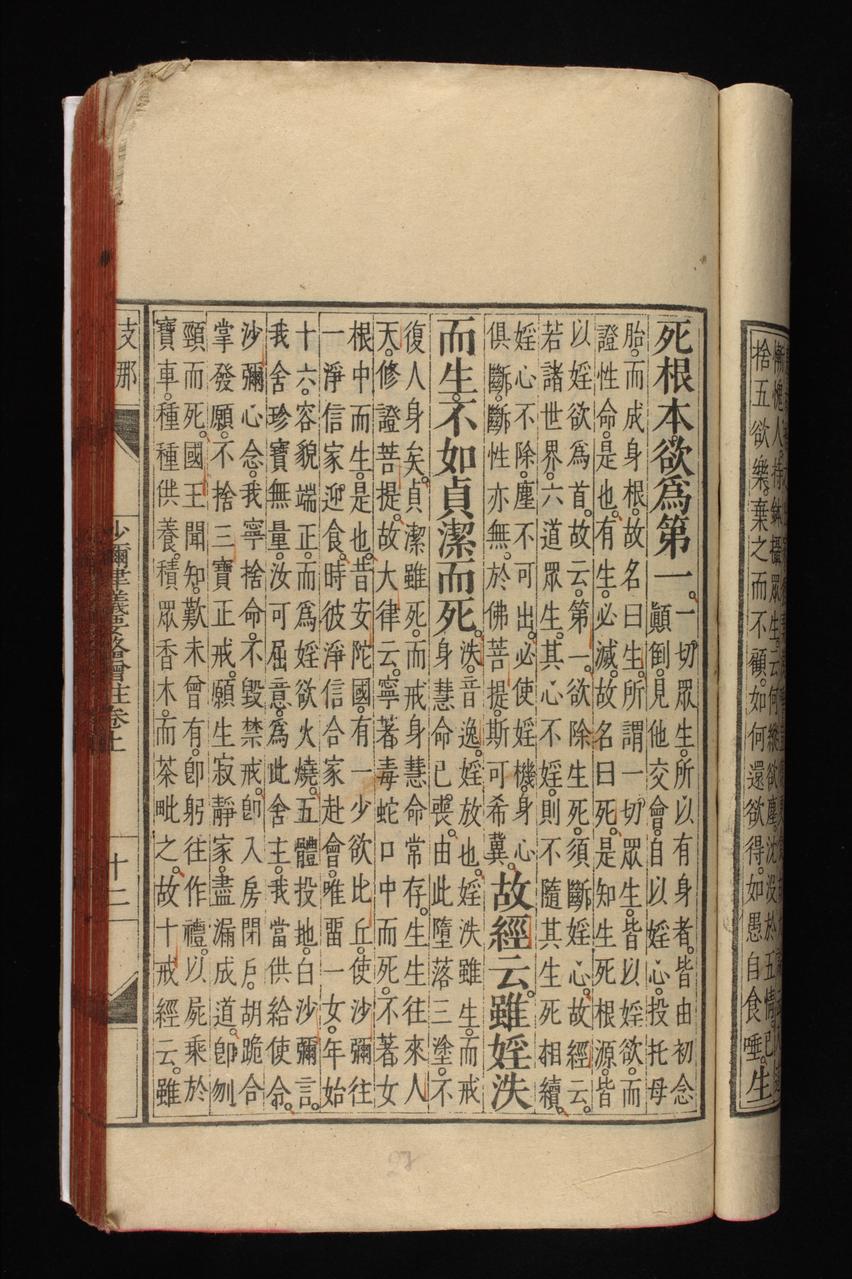 慚愧人。持鉢攝眾生。云何縱欲塵。沈沒於五情。已
捨五欲樂。棄之而不顧。如何還欲得。如愚自食唾。生
死根本。欲爲第一。
一切眾生。所以有身者。皆由初念
顛倒。見他交會。自以婬心。投托母
胎。而成身根。故名曰生。所謂一切眾生。皆以婬欲。而
證性命。是也。有生。必滅。故名曰死。是知生死根源。皆
以婬欲爲首。故云。第一。欲除生死。須斷婬心。故經云。
若諸世界。六道眾生。其心不婬。則不隨其生死相續。
婬心不除。塵不可出。必使婬機。身心
俱斷。斷性亦無。於佛菩提。斯可希冀。
故經云。雖婬泆
而生。不如貞潔而死。
泆。音逸。婬放也。婬泆雖生。而戒
身慧命已喪。由此墮落三塗。不
復人身矣。貞潔雖死。而戒身慧命常存。生生往來人
天。修證菩提。故大律云。寧著毒蛇口中而死。不著女
根中而生。是也。昔安陀國。有一少欲比丘。使沙彌往
一淨信家。迎食。時彼淨信合家赴會。唯畱一女。年始
十六。容貌端正。而爲婬欲火燒。五體投地。白沙彌言。
我舍珍寶無量。汝可屈意。爲此舍主。我當供給使命。
沙彌心念。我寧捨命。不毀禁戒。卽入房閉戶。胡跪合
掌發願。不捨三寶正戒。願生寂靜家。盡漏成道。卽刎
頸而死。國王聞知。歎未曾有。卽躬往作禮。以屍乘於
寶車。種種供養。積眾香木。而茶毗之。故十戒經云。雖
支那
沙彌律儀要畧會註卷上
十二